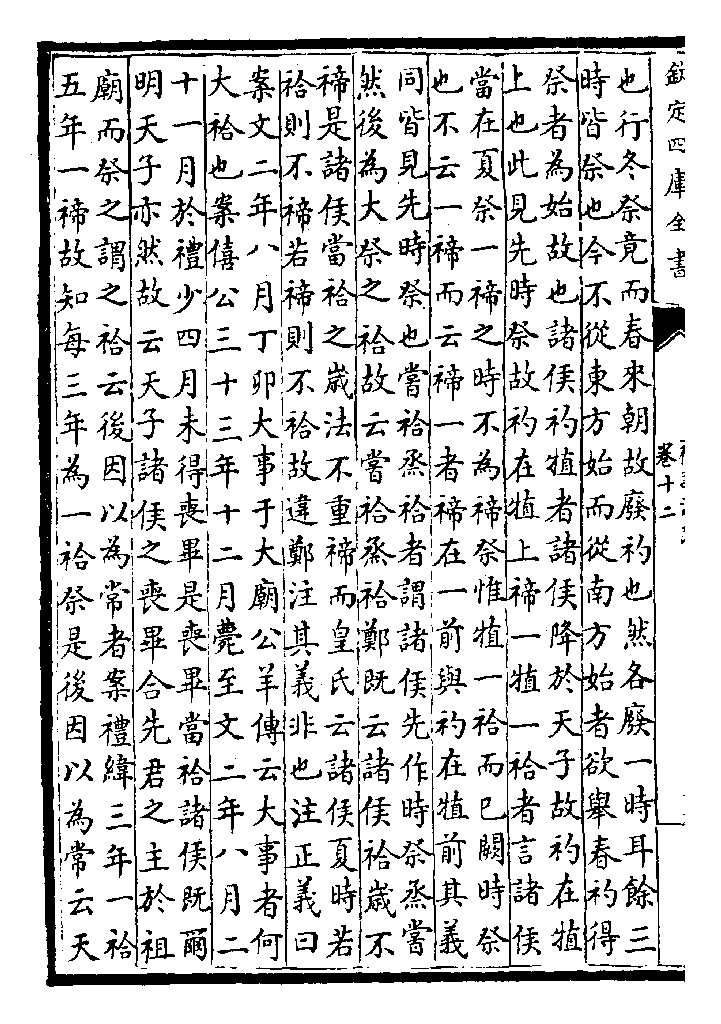 欽定四庫全書
卷十二
也行冬祭竟而春來朝故廢礿也然各廢一時耳餘三
時皆祭也今不從東方始而從南方始者欲舉春礿得
祭者為始故也諸侯礿犆者諸侯降於天子故礿在犆
上也此見先時祭故礿在犆上禘一犆一祫者言諸侯
當在夏祭一禘之時不為禘祭惟犆一祫而已闕時祭
也不云一禘而云禘一者禘在一前與礿在犆前其義
同皆見先時祭也嘗祫烝祫者謂諸侯先作時祭烝嘗
然後為大祭之祫故云嘗祫烝祫鄭既云諸侯祫歲不
禘是諸侯當祫之歲法不重禘而皇氏云諸侯夏時若
祫則不禘若禘則不祫故違鄭注其義非也注正義曰
案文二年八月丁卯大事于大廟公羊傳云大事者何
大祫也案僖公三十三年十二月薨至文二年八月二
十一月於禮少四月未得喪畢是喪畢當祫諸侯既爾
明天子亦然故云天子諸侯之喪畢合先君之主於祖
廟而祭之謂之祫云後因以為常者案禮緯三年一祫
五年一禘故知每三年為一祫祭是後因以為常云天